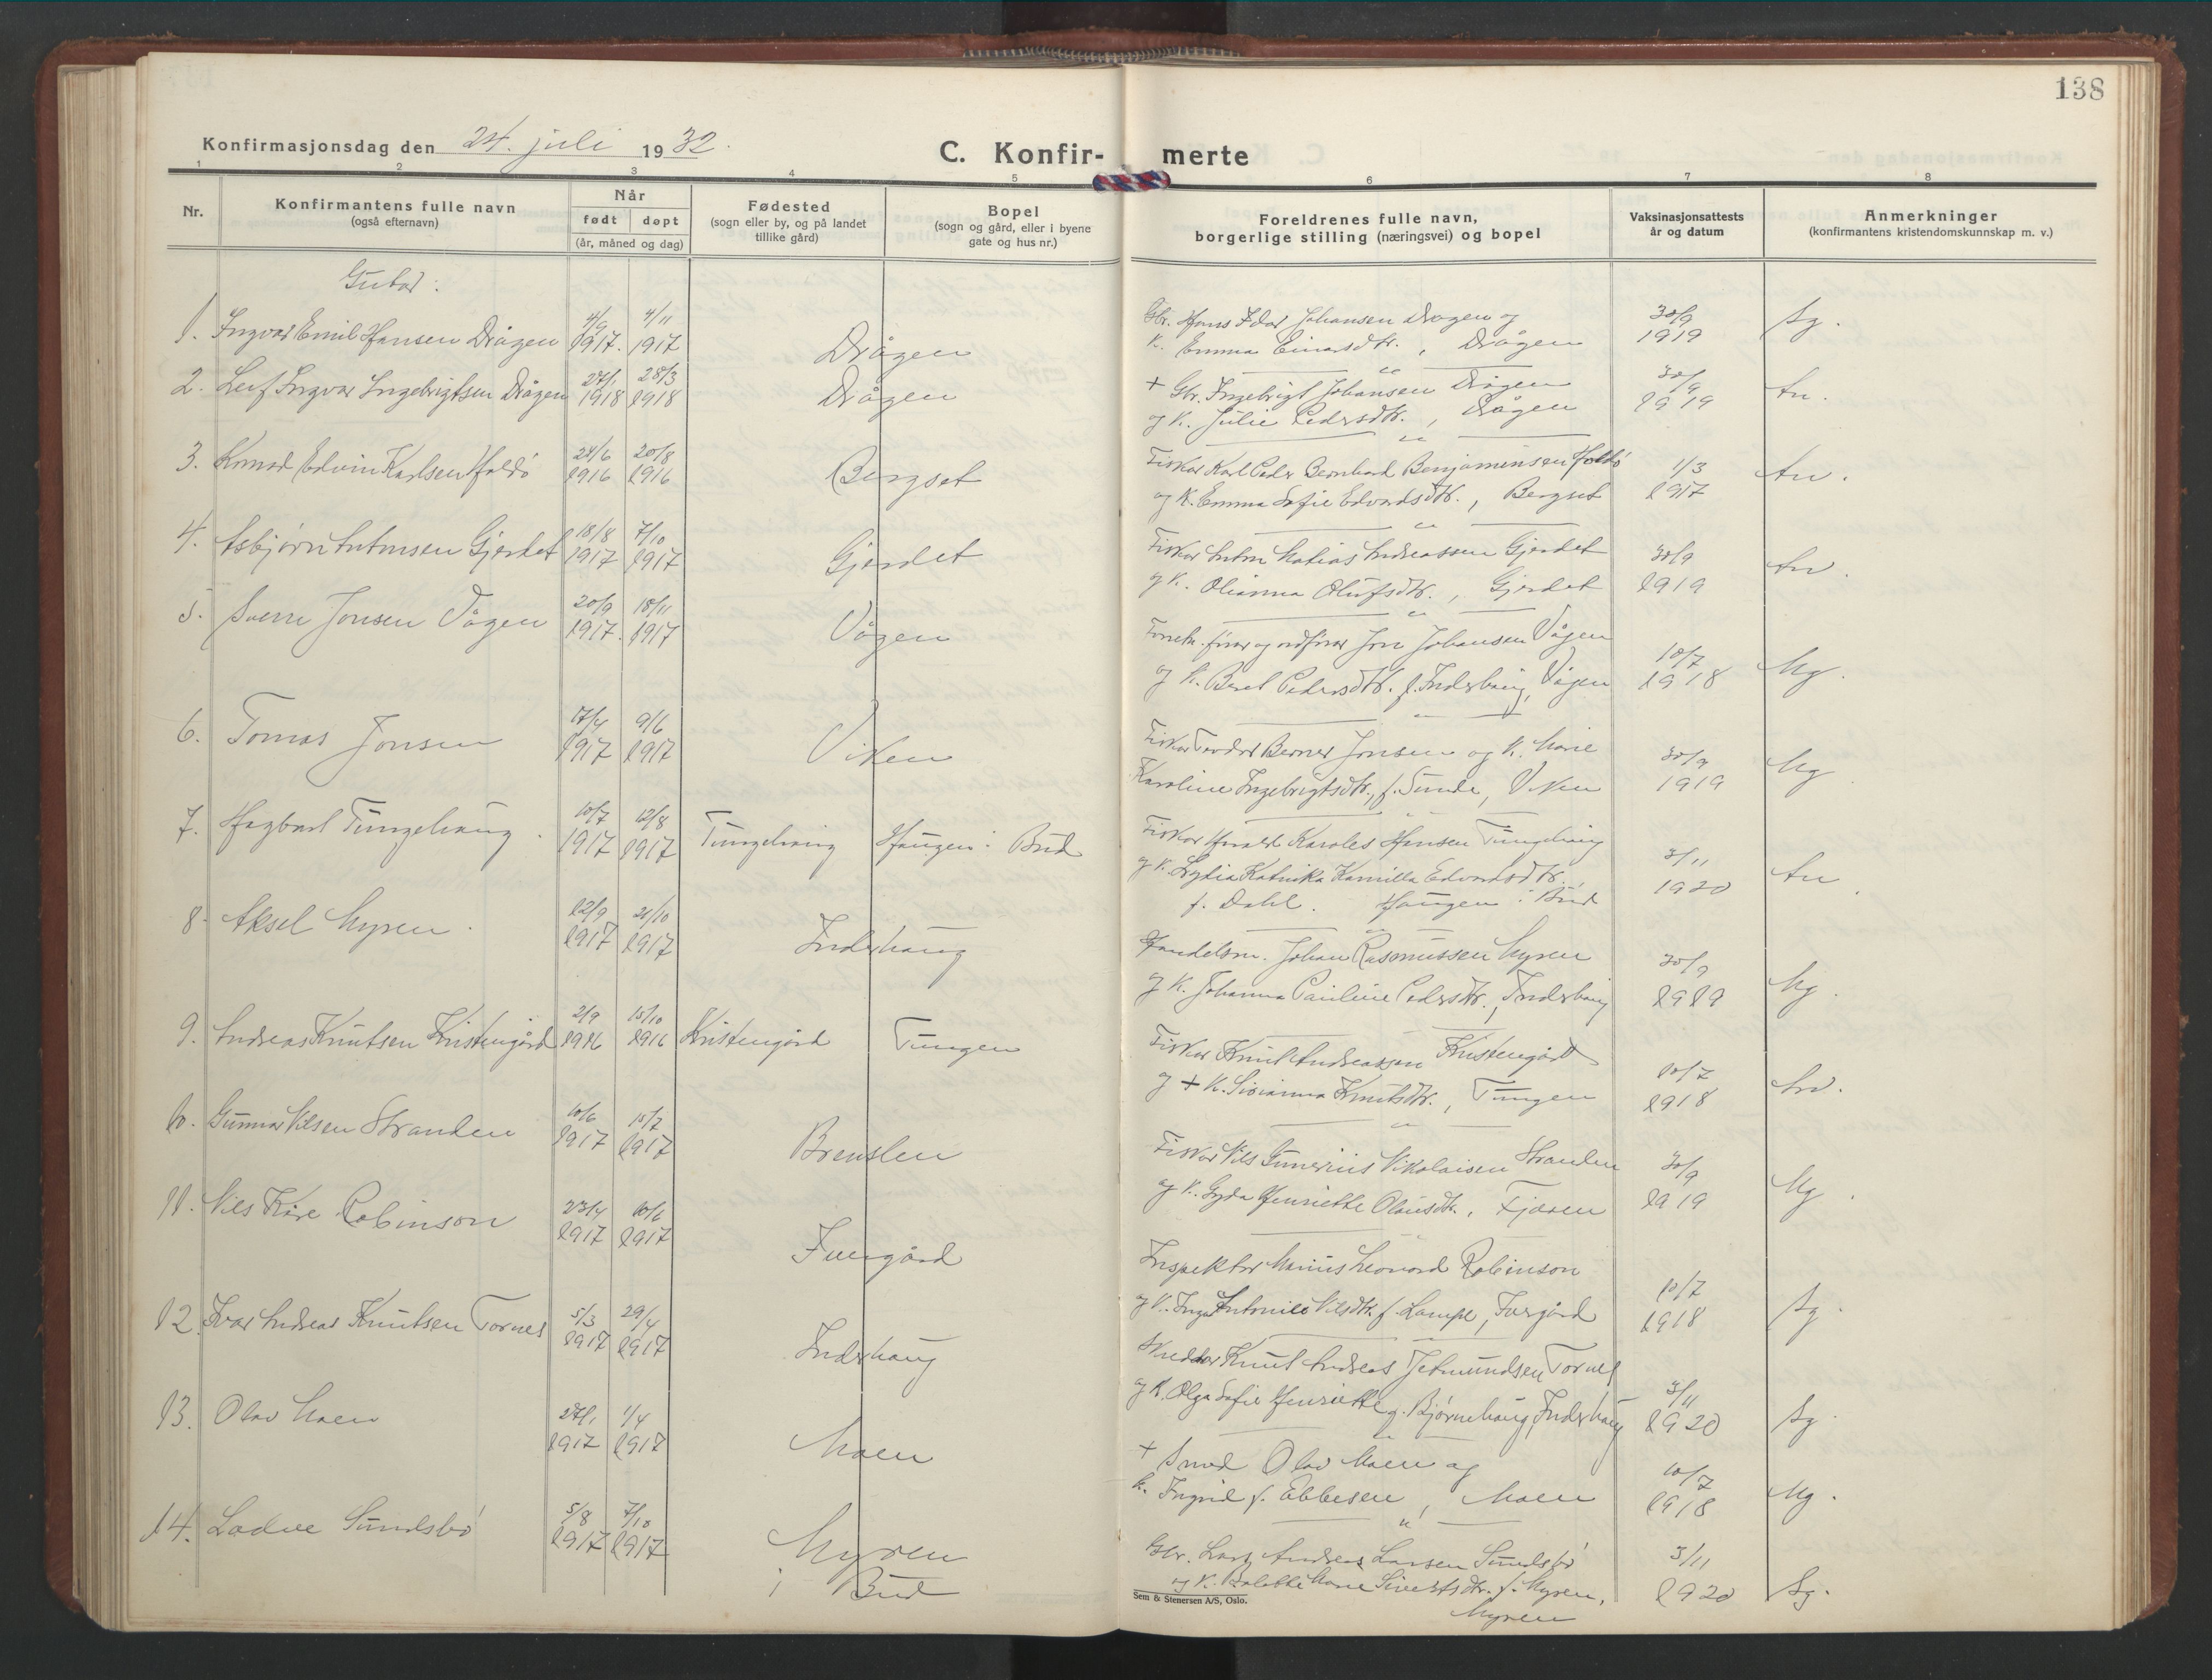 138
Konfirmasjonsdag den 24. juli 1932.
C. Konfir- merte
1 2 3 4 5 6 7 8
Nr.
Konfirmantens fulle navn
(også efternavn)
Når
født døpt
(år, måned og dag)
Fødested
(sogn eller by, og på landet
tillike gård)
Bopel
(sogn og gård, eller i byene
gate og hus nr.)
Foreldrenes fulle navn,
borgerlige stilling (næringsvei) og bopel
Vaksinasjonsattests
år og datum
Anmerkninger
(konfirmantens kristendomskunnskap m. v.)
Gutar:
1. Ingvar Emil Hansen Drågen 4/9 1917. 4/11 1917 Drågen
Gbr. Hans Johansen Drågen og
K. Emma Einarsdtr., Drågen
30/9 1919 Sg.
2. Leif Ingvar Ingebrigtsen Drågen 27/1 1918 28/3 1918 Drågen
+ Gbr. Ingebrigt Johansen Drågen
og K. Julie Pedersdtr., Drågen
30/9 1919
3. Konrad Edvin Karlsen Haldö 24/6 1916 20/8 1916 Bergset
Fiskar Karl Peder Bernhard Benjaminsen Haldö
og K. Emma Sofie Edvardsdtr., Bergset
1/3 1917
4. Asbjörn Antonsen Gjerdet 18/8 1917 7/10 1917 Gjerdet
Fiskar Anton Matias Andreassen Gjerdet
og K. Olianna Olufsdtr., Gjerdet
30/9 1919
5. Sverre Jonsen Vågen 20/9 1917. 18/11 1917 Vågen
og ordförar Jon Johansen Vågen
og K. Beret Pedersdtr. f. Inderhaug, Vågen
10/7 1918 Mg.
6. Tomas Jonsen 17/4 1917 9/6 1917 Viken
Fiskar Teodor Berner Jonsen og K. Marie
Karoline Ingebrigtsdtr., f. Sunde, Viken
30/9 1919 Mg.
7. Hagbart Tungehaug. 10/7 1917 12/8 1917 Tungehaug Haugen i Bud
Fiskar Harald Karoles Hansen Tungehaug
og K. Lydia Katinka Kamilla Edvardsdtr.,
f. Dahl. Haugen i Bud
3/11 1920
8. Aksel Myren. 12/9 1917 21/10 1917 Inderhaug
Handelsm. Johan Rasmussen Myren
og K. Johanna Pauline Pedersdtr., Inderhaug
30/9 1919 Mg.
9. Andreas Knutsen Kristengård 2/9 1916 15/10 1916 Kristengård Tungen
Fiskar Knut Andreassen Kristengård
og + K. Sivianna Knutsdtr., Tungen
10/7 1918
10. Gunnar Nilsen Stranden 10/6 1917 15/7 1917 Brenslen
Fiskar Nils Gunerius Nikolaisen Stranden
og K. Gyda Henriette Olausdtr., Fjæren
30/9 1919 Mg.
11. Nils Kåre Robinson 23/4 1917 10/6 1917
Inspektör Marius Leonard Robinson
og K. Inga Antonie Nilsdtr. f. Lampe,
10/7 1918 Sg.
12. Ivar Andreas Knutsen Tornes 5/3 1917 29/4 1917 Inderhaug
Skreddar Knut Andreas Jetmundsen Tornes
og K. Olga Sofie Henriette g. Björnehaug, Inderhaug
3/11 1920 Sg.
13. Olav Moen 27/1 1917 1/4 1917 Moen
+ Smed Olav Moen og
K. Ingrid f. Ebbesen, Moen
10/7 1918 Mg.
14. Ladve Sundsbö 5/8 1917 7/10 1917 Myren i Bud
Gbr. Lars Andreas Larsen Sundsbö
og K. Marie Sivertsdtr. f. Myren,
Myren
3/11 1920 Sg.
Sem & Stenersen A/S, Oslo.